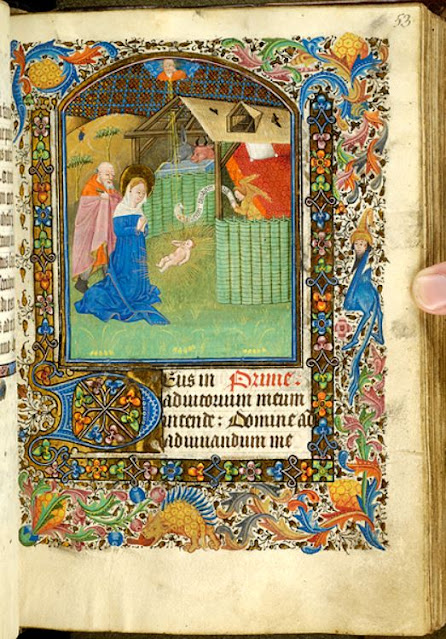 53
Deus in Prime.
adiutorium meum
intende: Domine ad
adiuuandum me